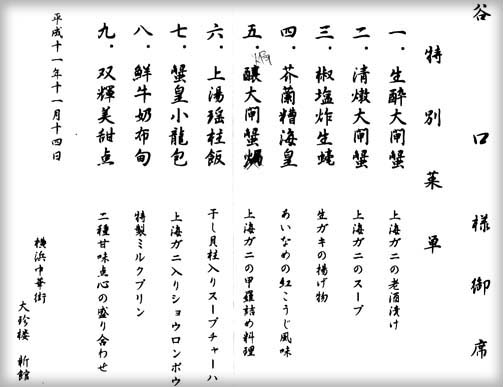 谷口様御席
特別菜単
一．生酔大闸蟹 上海ガニの老酒漬け
二．清燉大闸蟹 上海ガニのスープ
三．椒塩炸生蠔 生ガキの揚げ物
四．芥蘭糟海皇 あいなめの紅こうじ風味
五．釀大闸蟹 上海ガニの甲羅詰め料理
六．上湯瑶柱飯 干し貝柱入りスープチャーハ
七．蟹皇小龍包 上海ガニ入りショウロンポウ
八．鮮牛奶布甸 特製ミルクプリン
九．双輝美甜点 二種甘味点心の盛り合わせ
平成十一年十一月十四日
横浜中華街
大珍楼 新館